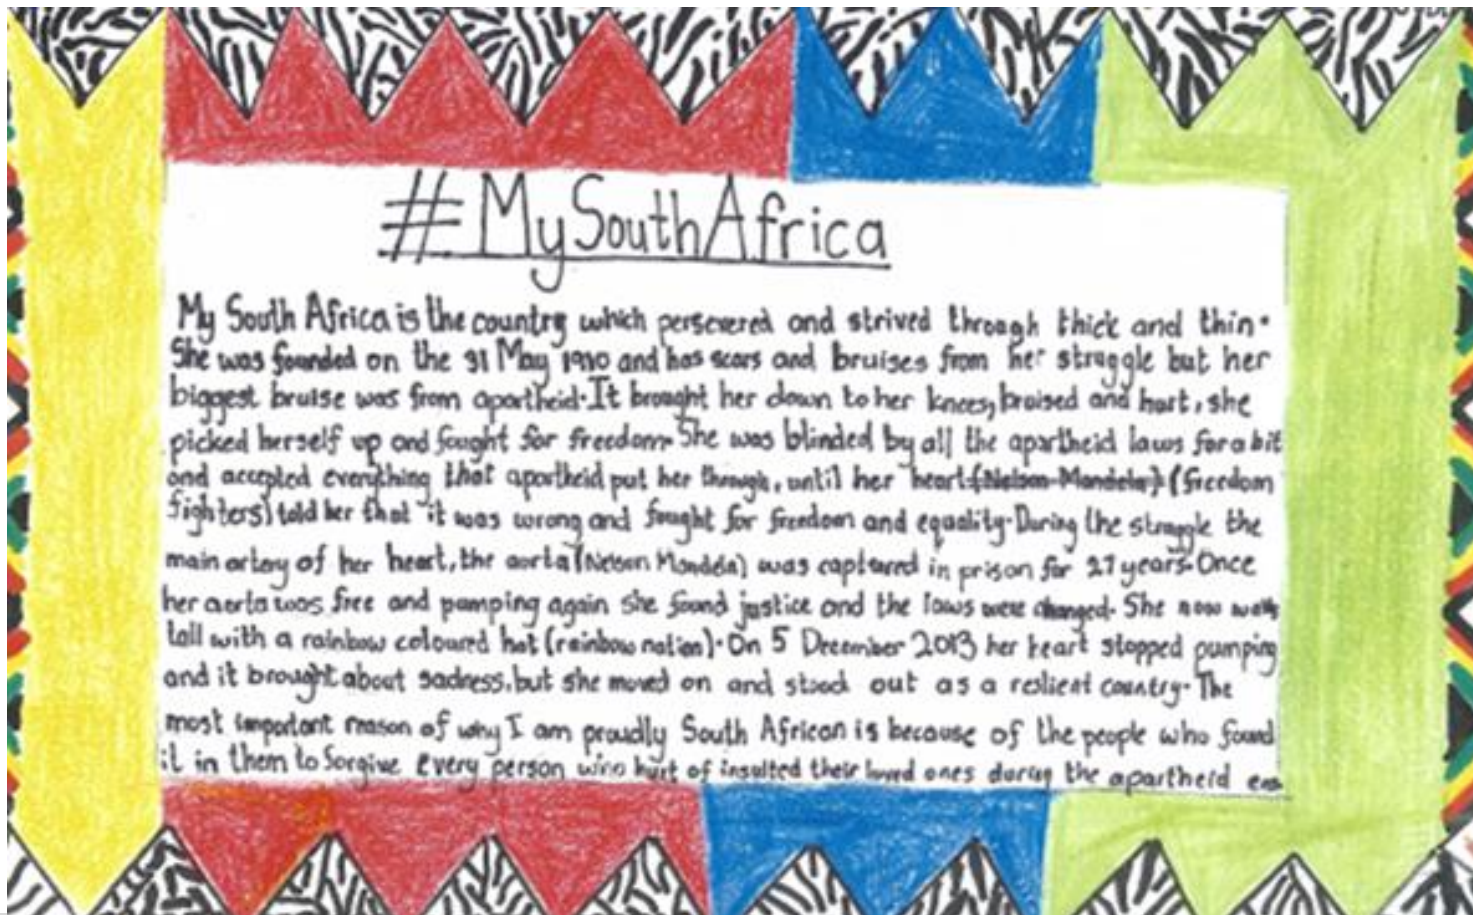 #MySouthAfrica
My South Africa is the country which persevered and strived through thick and thin.
She was founded on the 31 May 1910 and has scars and bruises from her struggle but her
biggest bruise was from apartheid. It brought her down to her knees, bruised and hurt, she
picked herself up and fought for freedom. She was blinded by all the apartheid laws for a bit
and accepted everything that apartheid put her through, until her heart (Nelson Mandela) (freedom
fighters) told her that it was wrong and fought for freedom and equality. During the struggle the
main artery of her heart, the aorta (Nelson Mandela) was captured in prison for 27 years. Once
her aorta was free and pumping again she found justice and the laws were changed. She now walks
tall with a rainbow coloured hat (rainbow nation). On 5 December 2013 her heart stopped pumping
and it brought about sadness, but she moved on and stood out as a reslient country. The
most important reason of why I am proudly South African is because of the people who found
it in them to forgive every person who hurt of insulted their loved ones during the apartheid era